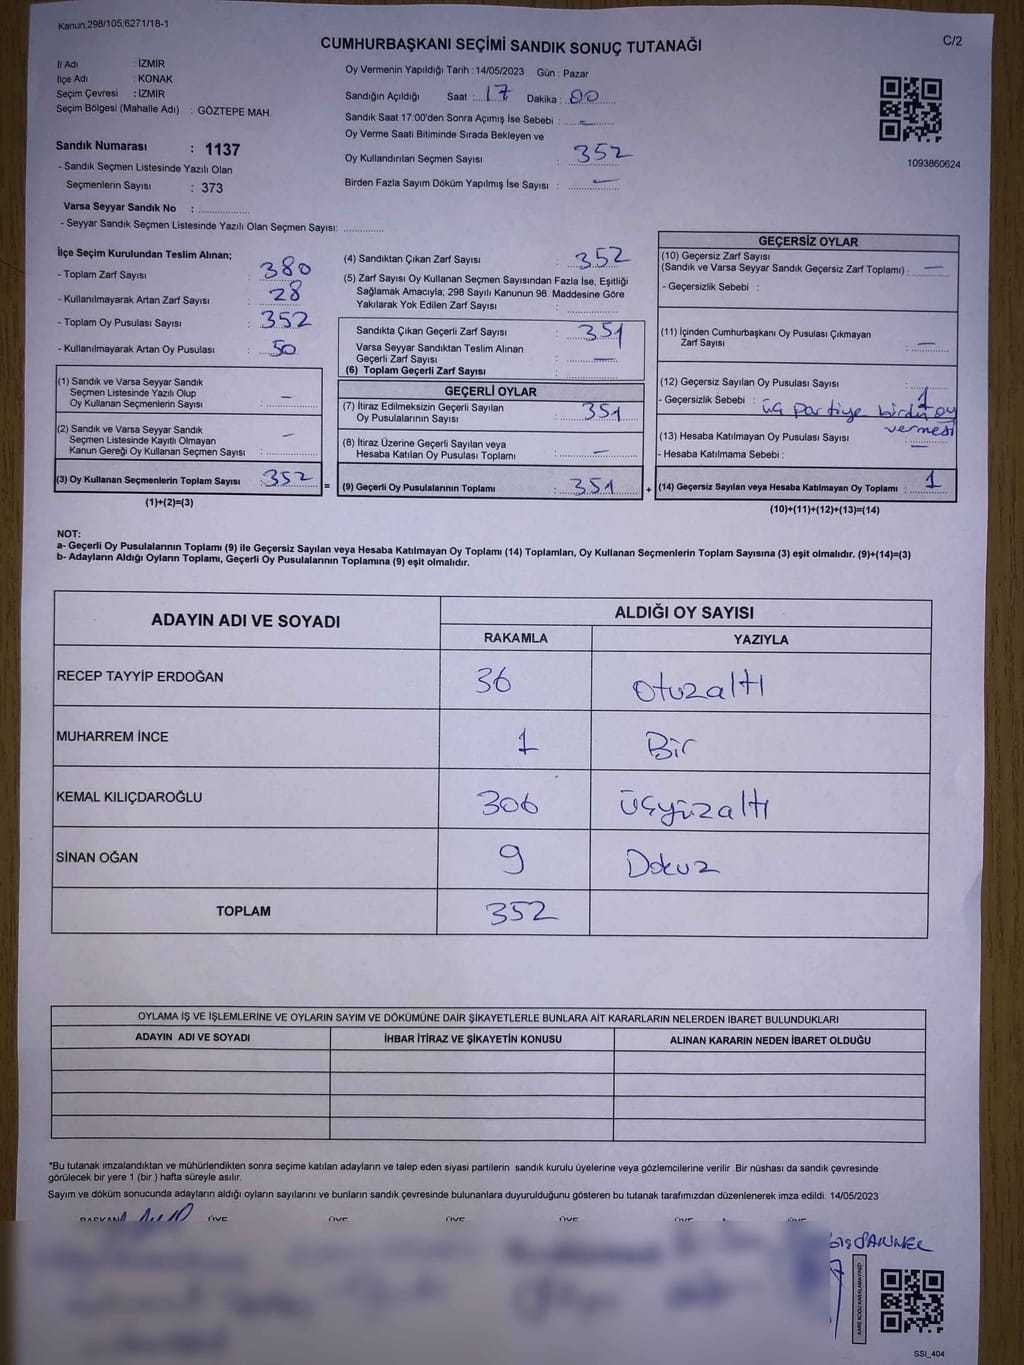 Kanun;298/105;6271/18-1
C/2
CUMHURBAŞKANI SEÇİMİ SANDIK SONUÇ TUTANAĞI
İl Adı : İZMİR
İlçe Adı : KONAK
Seçim Çevresi : İZMİR
Seçim Bölgesi (Mahalle Adı) : GÖZTEPE MAH.
Sandık Numarası : 1137
- Sandık Seçmen Listesinde Yazılı Olan
Seçmenlerin Sayısı : 373
Varsa Seyyar Sandık No :
- Seyyar Sandık Seçmen Listesinde Yazılı Olan Seçmen Sayısı:
Oy Vermenin Yapıldığı Tarih : 14/05/2023 Gün : Pazar
Sandığın Açıldığı Saat : 17 Dakika : 00
Sandık Saat 17:00'den Sonra Açımış İse Sebebi : -
Oy Verme Saati Bitiminde Sırada Bekleyen ve
Oy Kullandırılan Seçmen Sayısı : 352
Birden Fazla Sayım Döküm Yapılmış İse Sayısı : -
1093860624
İlçe Seçim Kurulundan Teslim Alınan;
- Toplam Zarf Sayısı : 380
- Kullanılmayarak Artan Zarf Sayısı : 28
- Toplam Oy Pusulası Sayısı : 352
- Kullanılmayarak Artan Oy Pusulası : 50
(1) Sandık ve Varsa Seyyar Sandık
Seçmen Listesinde Yazılı Olup
Oy Kullanan Seçmenlerin Sayısı : -
(2) Sandık ve Varsa Seyyar Sandık
Seçmen Listesinde Kayıtlı Olmayan
Kanun Gereği Oy Kullanan Seçmen Sayısı : -
(3) Oy Kullanan Seçmenlerin Toplam Sayısı : 352
(1)+(2)=(3)
(4) Sandıktan Çıkan Zarf Sayısı : 352
(5) Zarf Sayısı Oy Kullanan Seçmen Sayısından Fazla İse, Eşitliği
Sağlamak Amacıyla; 298 Sayılı Kanunun 98. Maddesine Göre
Yakılarak Yok Edilen Zarf Sayısı :
Sandıkta Çıkan Geçerli Zarf Sayısı : 351
Varsa Seyyar Sandıktan Teslim Alınan
Geçerli Zarf Sayısı : -
(6) Toplam Geçerli Zarf Sayısı :
GEÇERLİ OYLAR
(7) İtiraz Edilmeksizin Geçerli Sayılan
Oy Pusulalarının Sayısı : 351
(8) İtiraz Üzerine Geçerli Sayılan veya
Hesaba Katılan Oy Pusulası Toplamı : -
= (9) Geçerli Oy Pusulalarının Toplamı : 351 +
GEÇERSİZ OYLAR
(10) Geçersiz Zarf Sayısı
(Sandık ve Varsa Seyyar Sandık Geçersiz Zarf Toplamı) : -
- Geçersizlik Sebebi :
(11) İçinden Cumhurbaşkanı Oy Pusulası Çıkmayan
Zarf Sayısı : -
(12) Geçersiz Sayılan Oy Pusulası Sayısı : 1
- Geçersizlik Sebebi : üç partiye birden oy
vermesi
(13) Hesaba Katılmayan Oy Pusulası Sayısı : -
- Hesaba Katılmama Sebebi :
(14) Geçersiz Sayılan veya Hesaba Katılmayan Oy Toplamı : 1
(10)+(11)+(12)+(13)=(14)
NOT:
a- Geçerli Oy Pusulalarının Toplamı (9) ile Geçersiz Sayılan veya Hesaba Katılmayan Oy Toplamı (14) Toplamları, Oy Kullanan Seçmenlerin Toplam Sayısına (3) eşit olmalıdır. (9)+(14)=(3)
b- Adayların Aldığı Oyların Toplamı, Geçerli Oy Pusulalarının Toplamına (9) eşit olmalıdır.
ADAYIN ADI VE SOYADI ALDIĞI OY SAYISI
RAKAMLA YAZIYLA
RECEP TAYYİP ERDOĞAN 36 otuzaltı
MUHARREM İNCE 1 Bir
KEMAL KILIÇDAROĞLU 306 üçyüzaltı
SİNAN OĞAN 9 Dokuz
TOPLAM 352
OYLAMA İŞ VE İŞLEMLERİNE VE OYLARIN SAYIM VE DÖKÜMÜNE DAİR ŞİKAYETLERLE BUNLARA AİT KARARLARIN NELERDEN İBARET BULUNDUKLARI
ADAYIN ADI VE SOYADI İHBAR İTİRAZ VE ŞİKAYETİN KONUSU ALINAN KARARIN NEDEN İBARET OLDUĞU
*Bu tutanak imzalandıktan ve mühürlendikten sonra seçime katılan adayların ve talep eden siyasi partilerin sandık kurulu üyelerine veya gözlemcilerine verilir. Bir nüshası da sandık çevresinde
görülecek bir yere 1 (bir ) hafta süreyle asılır.
Sayım ve döküm sonucunda adayların aldığı oyların sayılarını ve bunların sandık çevresinde bulunanlara duyurulduğunu gösteren bu tutanak tarafımızdan düzenlenerek imza edildi. 14/05/2023
BAŞKAN ÜYE ÜYE ÜYE ÜYE ÜYE ÜYE
KARE KODU KARALAMAYINIZ!
SSİ_404